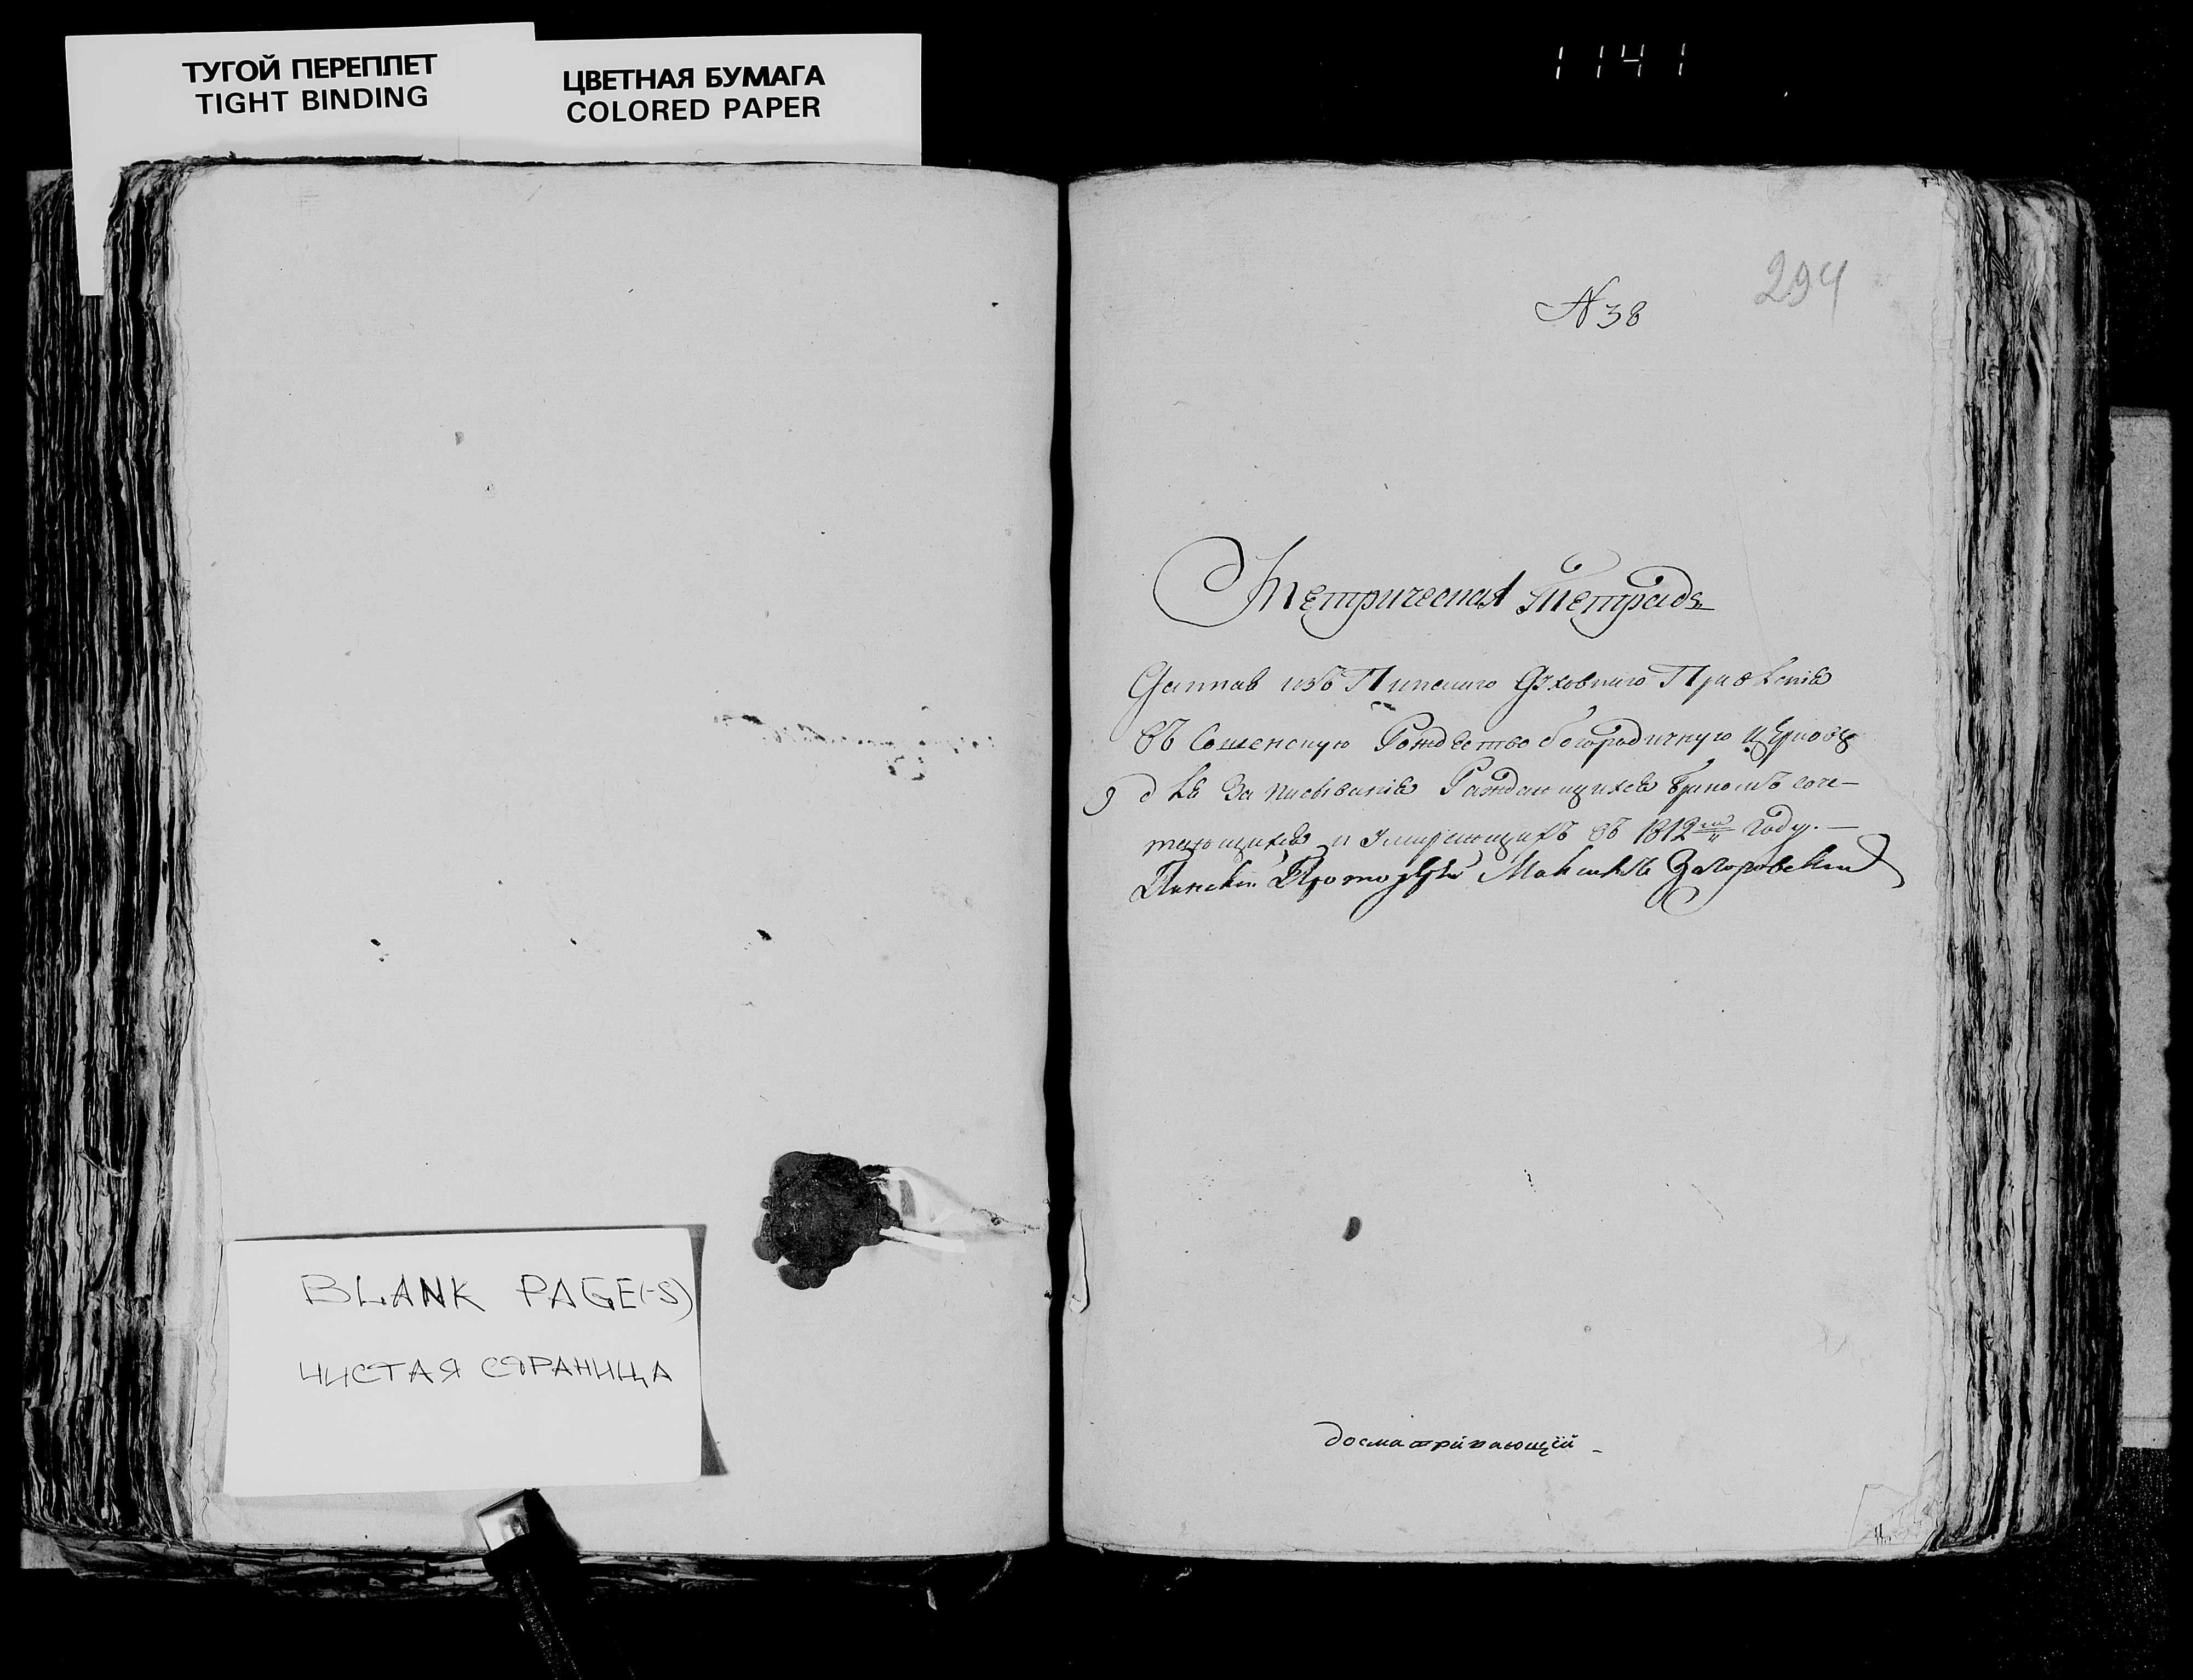 ТУГОЙ ПЕРЕПЛЕТ
TIGHT BINDING
ЦВЕТНАЯ БУМАГА
COLORED PAPER
1141
294
N 38
Метрическая Тетрадь
Данная изъ Пинскаго Духовнаго Правленія
въ Сошенскую Рождество богородичную церковь
для Записыванія Раждающихся бракомъ соче-
тающихся и Умирающихъ въ 1812мъ году.—
Пинскій Протоіерей Загоровскій
досматривающій
BLANK PAGE(-S)
ЧИСТАЯ СТРАНИЦА